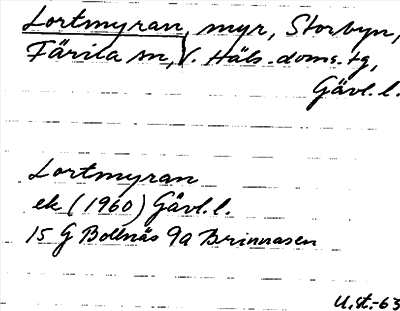 Lortmyran, myr, Storbyn,
Färila sn, V. Häls. doms.-tg,
Gävl. l.
Lortmyran
ek (1960) Gävl. l.
15 G Bollnäs 9a Brinnåsen
U.st.-63